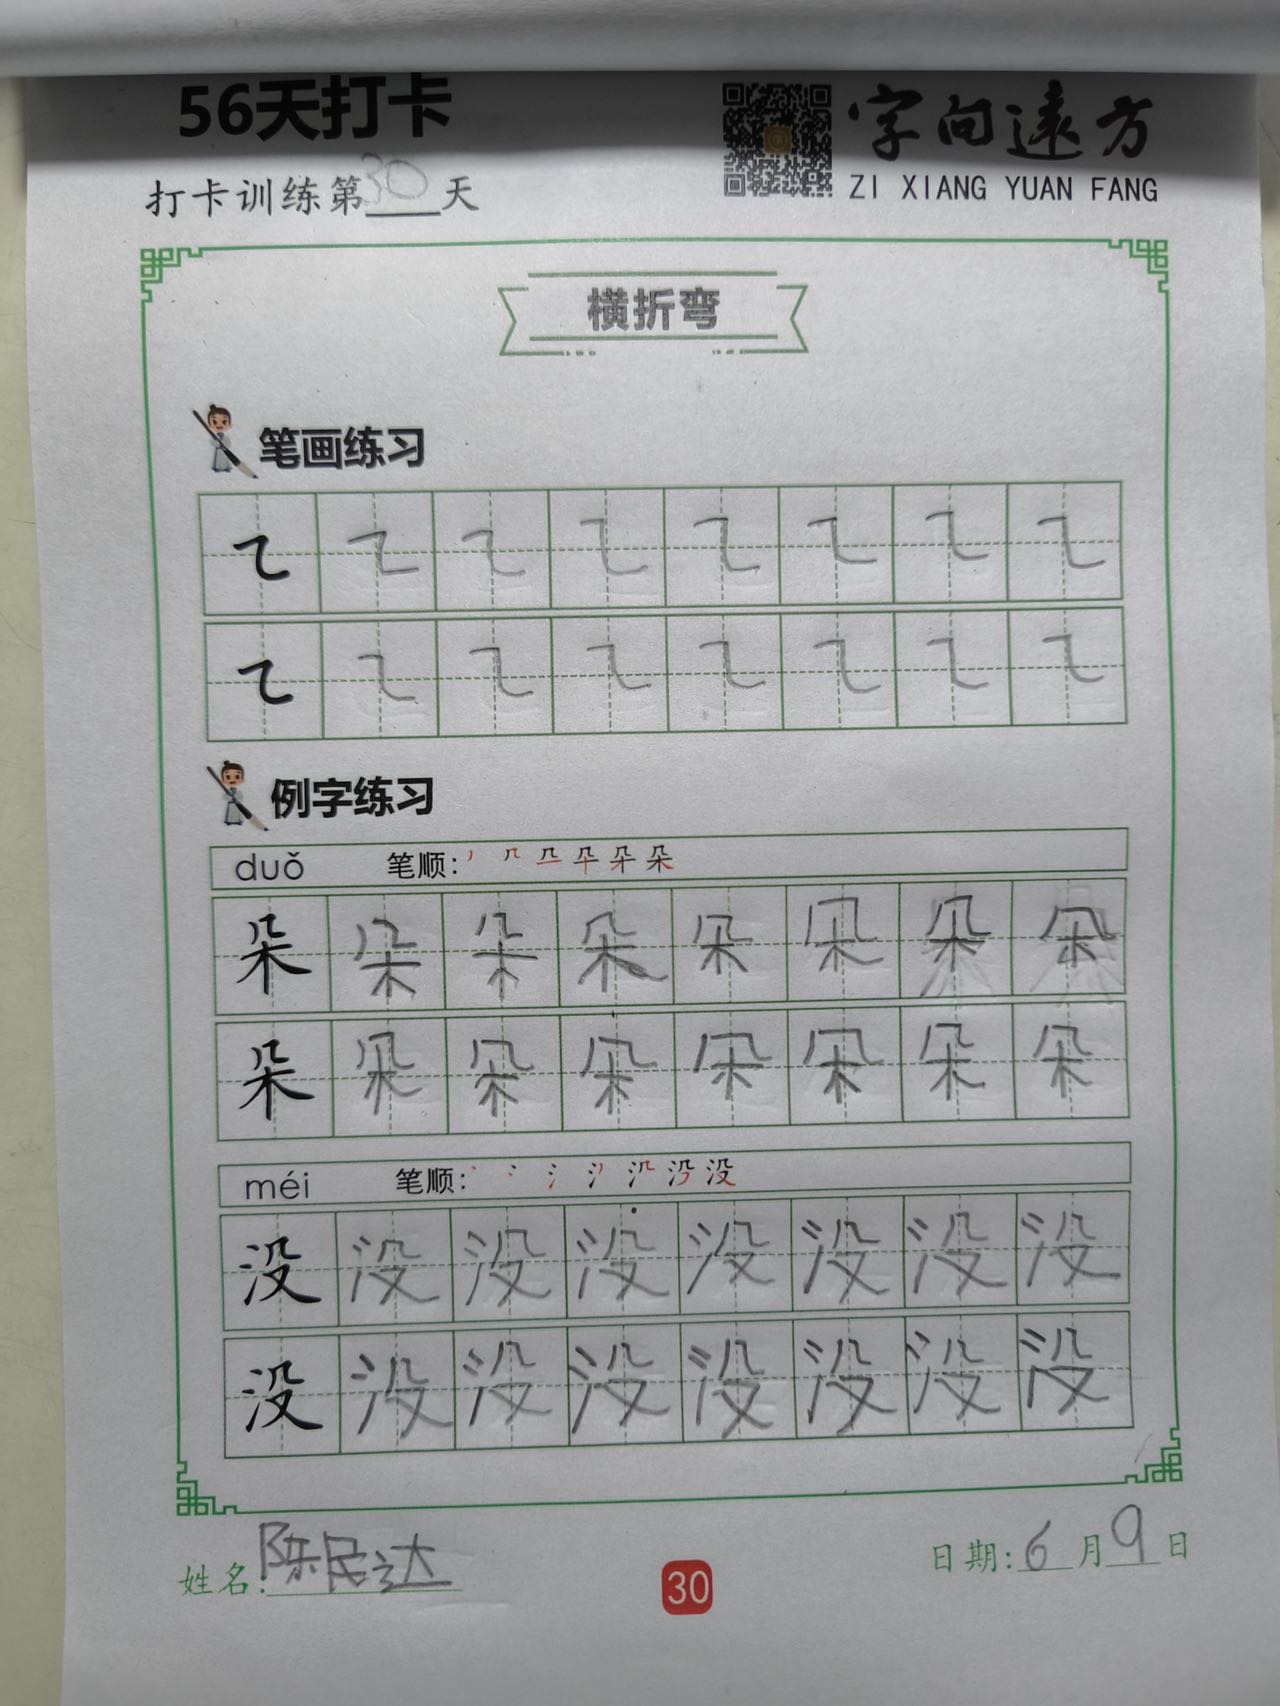 56天打卡
字向遠方
ZI XIANG YUAN FANG
打卡训练第30天
横折弯
笔画练习
㇍㇍㇍㇍㇍㇍㇍㇍
㇍㇍㇍㇍㇍㇍㇍㇍
例字练习
duǒ 笔顺:
朵朵朵朵朵朵朵朵
朵朵朵朵朵朵朵朵
méi 笔顺:
没没没没没没没没
没没没没没没没没
姓名:陈民达
30
日期:6月9日